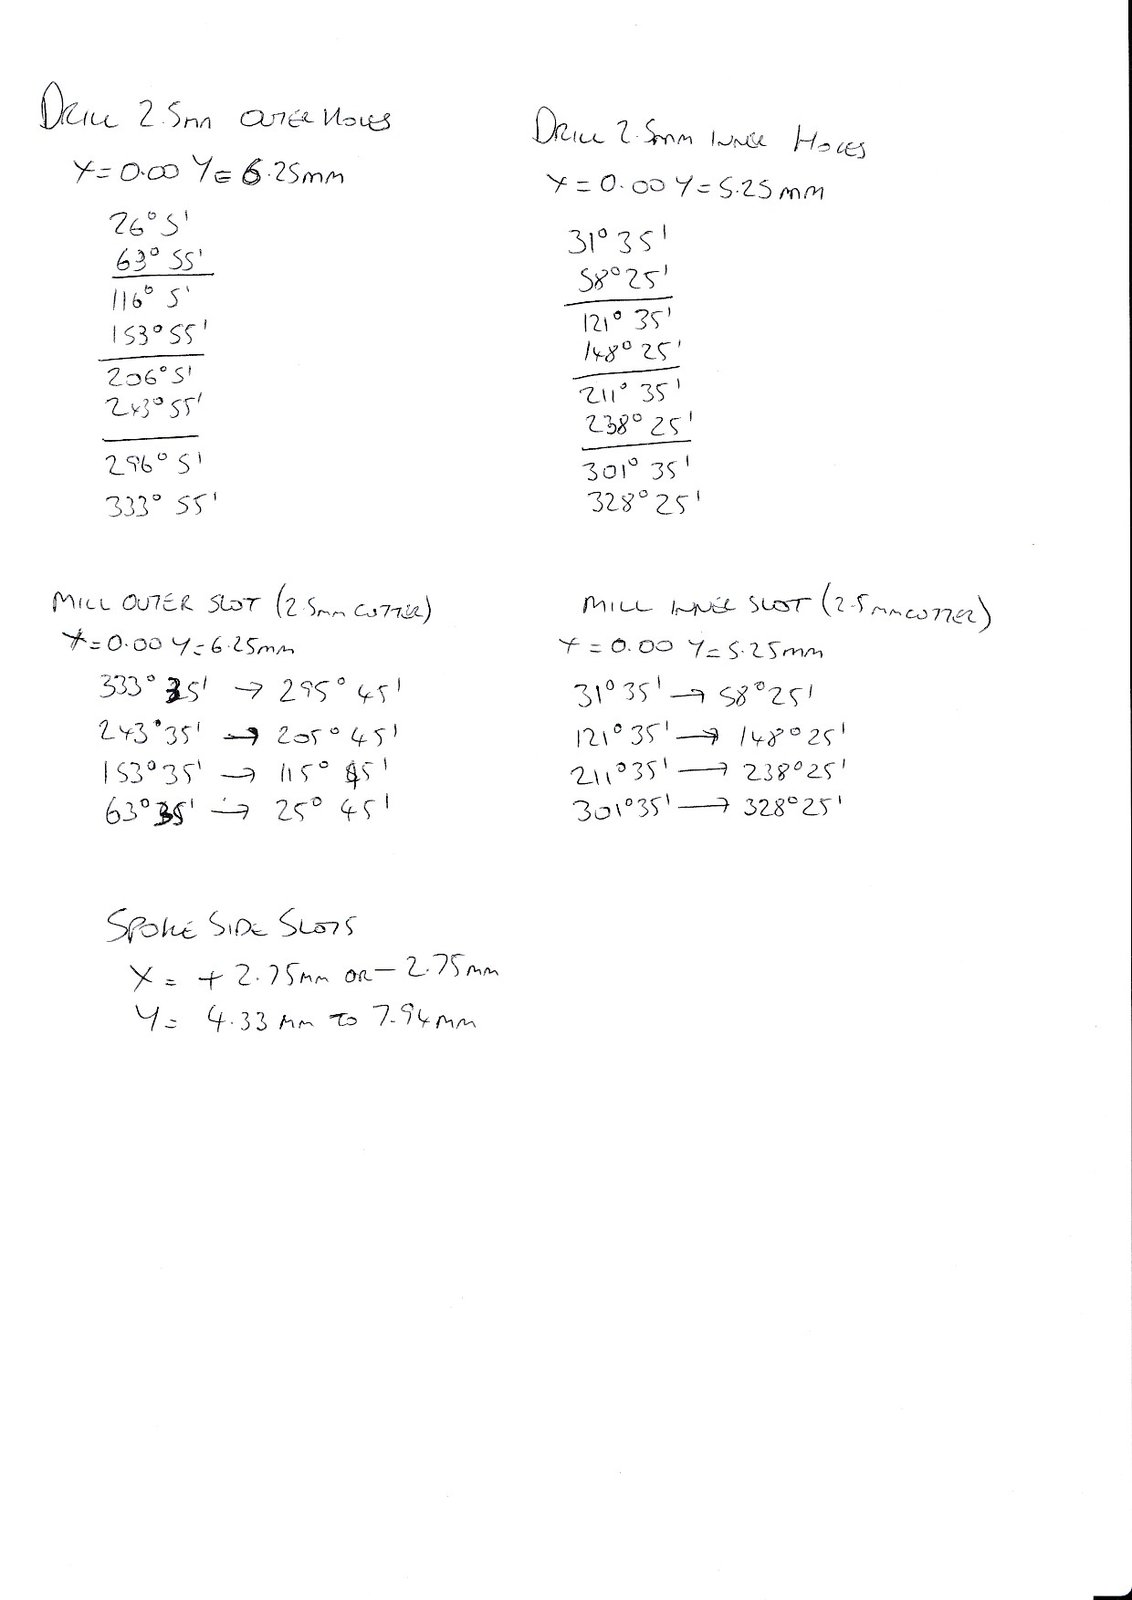 DRILL 2.5mm OUTER HOLES
X=0.00 Y=6.25mm
26° 5'
63° 55'
116° 5'
153° 55'
206° 5'
243° 55'
296° 5'
333° 55'
DRILL 2.5mm INNER HOLES
X=0.00 Y=5.25mm
31° 35'
58° 25'
121° 35'
148° 25'
211° 35'
238° 25'
301° 35'
328° 25'
MILL OUTER SLOT (2.5mm CUTTER)
X=0.00 Y=6.25mm
333° 35' → 295° 45'
243° 35' → 205° 45'
153° 35' → 115° 45'
63° 35' → 25° 45'
MILL INNER SLOT (2.5mm CUTTER)
X=0.00 Y=5.25mm
31° 35' → 58° 25'
121° 35' → 148° 25'
211° 35' → 238° 25'
301° 35' → 328° 25'
SPOKE SIDE SLOTS
X= +2.75mm OR -2.75mm
Y= 4.33mm TO 7.94mm